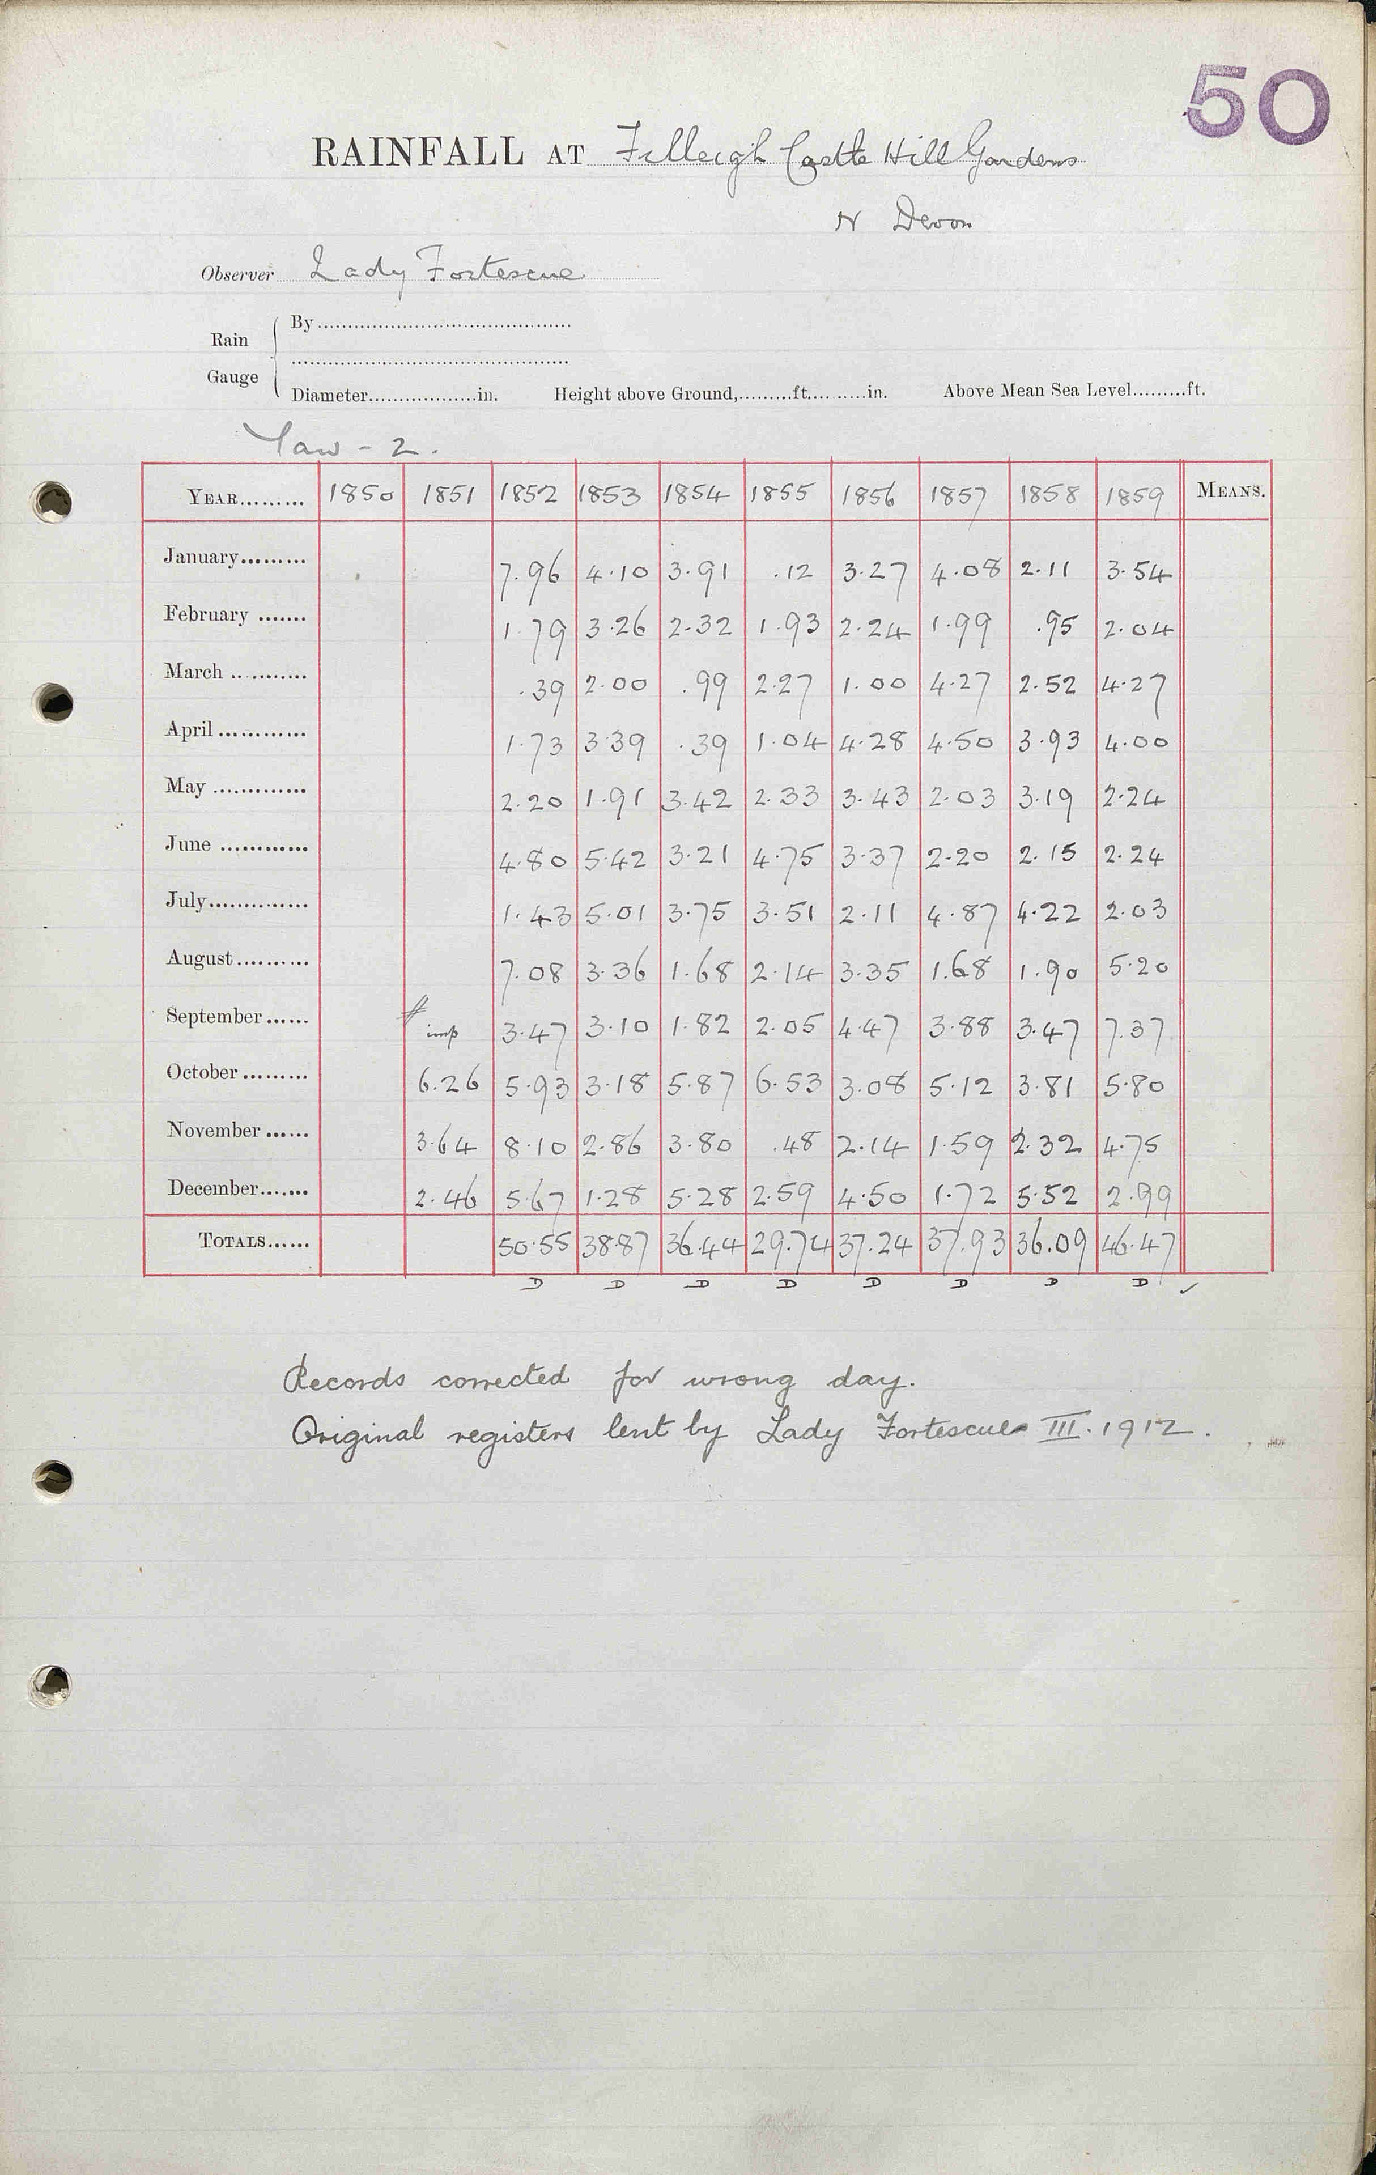 50
RAINFALL AT Filleigh Castle Hill Gardens
N Devon
Observer Lady Fortescue
Rain Gauge
By
Diameter in. Height above Ground, ft. in. Above Mean Sea Level ft.
Taw - 2.
YEAR 1850 1851 1852 1853 1854 1855 1856 1857 1858 1859 MEANS.
January 7.96 4.10 3.91 .12 3.27 4.08 2.11 3.54
February 1.79 3.26 2.32 1.93 2.24 1.99 .95 2.04
March .39 2.00 .99 2.27 1.00 4.27 2.52 4.27
April 1.73 3.39 .39 1.04 4.28 4.50 3.93 4.00
May 2.20 1.91 3.42 2.33 3.43 2.03 3.19 2.24
June 4.80 5.42 3.21 4.75 3.37 2.20 2.15 2.24
July 1.43 5.01 3.75 3.51 2.11 4.87 4.22 2.03
August 7.08 3.36 1.68 2.14 3.35 1.68 1.90 5.20
September imp 3.47 3.10 1.82 2.05 4.47 3.88 3.47 7.37
October 6.26 5.93 3.18 5.87 6.53 3.08 5.12 3.81 5.80
November 3.64 8.10 2.86 3.80 .48 2.14 1.59 2.32 4.75
December 2.46 5.67 1.28 5.28 2.59 4.50 1.72 5.52 2.99
TOTALS 50.55 38.87 36.44 29.74 37.24 37.93 36.09 46.47
D D D D D D D D ✓
Records corrected for wrong day.
Original registers lent by Lady Fortescue III. 1912.